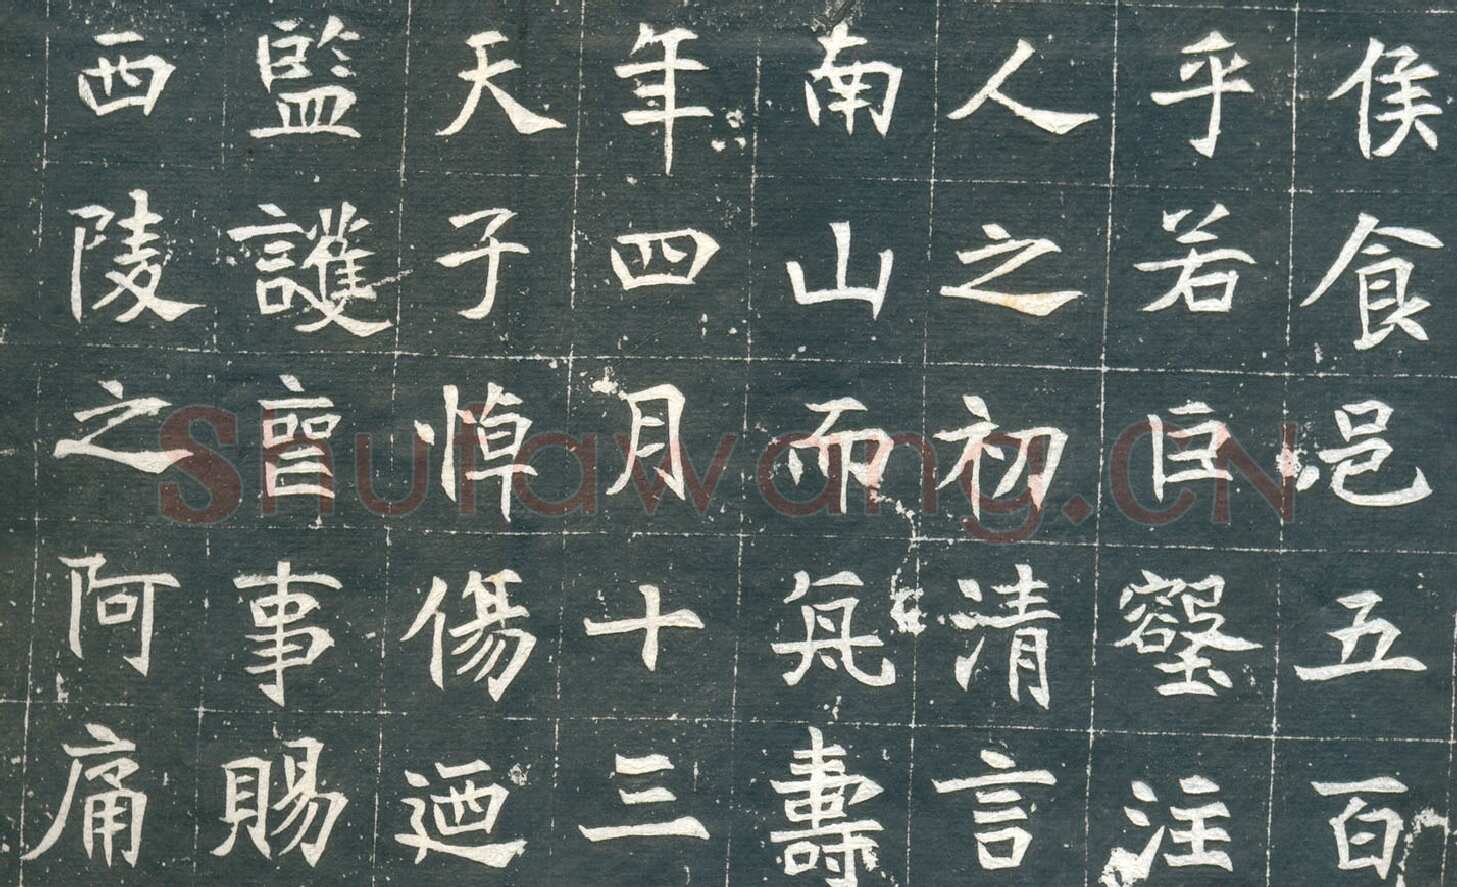 侯食邑五百
乎若巨壑注
人之初清言
南山而壽
年四月十三
天子悼傷迺
監護喪事賜
西陵之阿痛
Shufawang.CN